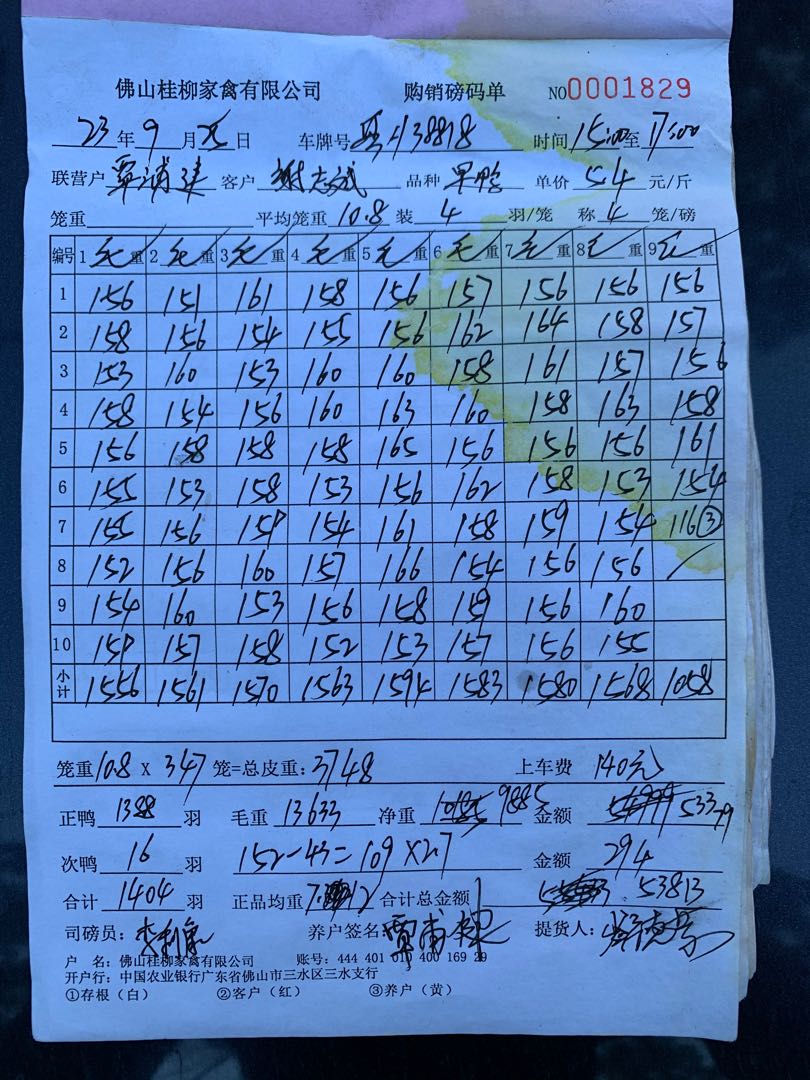 佛山桂柳家禽有限公司 购销磅码单 NO0001829
23年9月25日 车牌号 38818 时间15:00至17:00
联营户 覃浦建 客户 谢志斌 品种 旱鸭 单价5.4元/斤
笼重 平均笼重10.8装4羽/笼 称4笼/磅
编号 1毛重 2毛重 3毛重 4毛重 5毛重 6毛重 7毛重 8毛重 9毛重
1 156 151 161 158 156 157 156 156 156
2 158 156 154 155 156 162 164 158 157
3 153 160 153 160 160 158 161 157 156
4 158 154 156 160 163 160 158 163 158
5 156 158 158 158 165 156 156 156 161
6 155 153 158 153 156 162 158 153 154
7 155 156 159 154 161 158 159 154 116③
8 152 156 160 157 166 154 156 156 /
9 154 160 153 156 158 159 156 160
10 159 157 158 152 153 157 156 155
小计 1556 1561 1570 1563 1594 1583 1580 1568 1058
笼重10.8 X 347笼=总皮重:3748 上车费 140元
正鸭 1388 羽 毛重 13633 净重 9885 金额 53379
次鸭 16 羽 152-43=109×2.7 金额 294
合计 1404 羽 正品均重7.12 合计总金额 53813
司磅员: 养户签名: 提货人:
户 名:佛山桂柳家禽有限公司 账号:444 401 010 400 169 29
开户行:中国农业银行广东省佛山市三水区三水支行
①存根(白) ②客户(红) ③养户(黄)